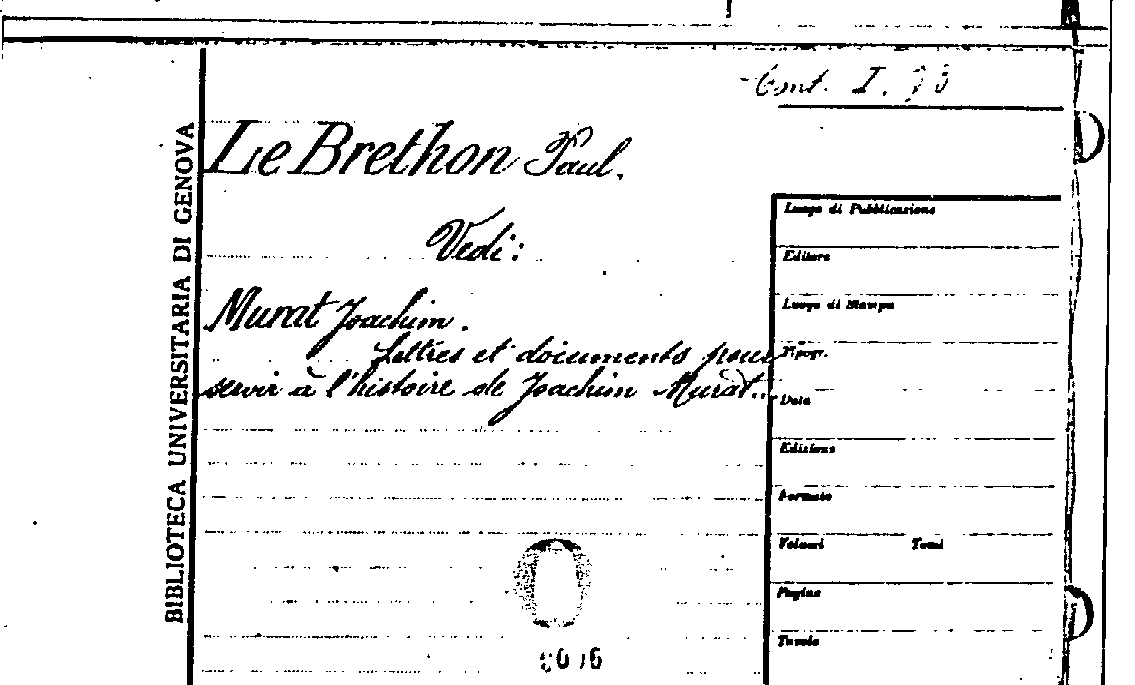 Cont. I.
Le Brethon Paul.
Vedi:
Murat Joachim.
Lettres et documents pour
servir à l'histoire de Joachim Murat...
BIBLIOTECA UNIVERSITARIA DI GENOVA
Luogo di Pubblicazione
Editore
Luogo di Stampa
Tipogr.
Data
Edizione
Formato
Volumi Tomi
Pagine
Tavole